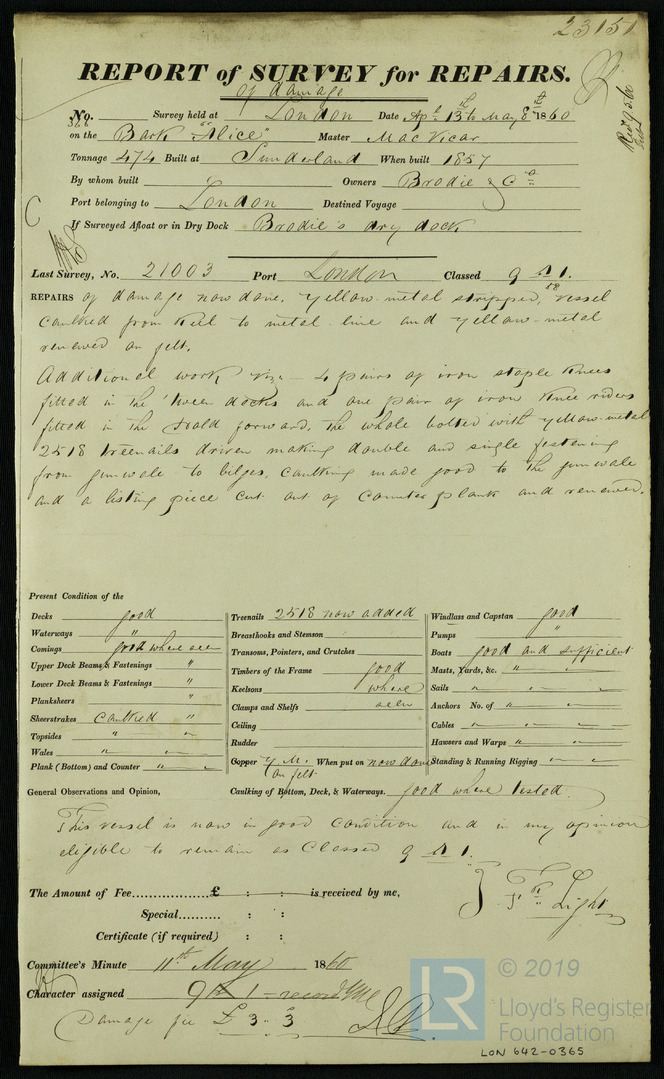 23151
REPORT of SURVEY for REPAIRS.
of damage
No. 366 Survey held at London Date Apl 13th to May 8th 1860
on the Bark "Alice" Master MacVicar
Tonnage 474 Built at Sunderland When built 1857
By whom built Owners Brodie & Co
Port belonging to London Destined Voyage
If Surveyed Afloat or in Dry Dock Brodie's dry dock
Last Survey, No. 21003 Port London Classed 9 A 1.
58
REPAIRS of damage now done. Yellow metal stripped, vessel
caulked from keel to metal line and yellow-metal
renewed on felt.
Additional work viz - 4 pairs of iron staple knees
fitted in the 'tween decks and one pair of iron knee riders
fitted in the Hold forward, the whole bolted with yellow-metal
2518 treenails driven making double and single fastening
from gunwale to bilges, caulking made good to the gunwale
and a listing piece cut out of counter plank and renewed.
Present Condition of the
Decks good
Waterways "
Comings good where seen
Upper Deck Beams & Fastenings "
Lower Deck Beams & Fastenings "
Planksheers "
Sheerstrakes caulked "
Topsides " "
Wales " "
Plank (Bottom) and Counter " "
Treenails 2518 now added
Breasthooks and Stemson
Transoms, Pointers, and Crutches
Timbers of the Frame good
Keelsons where
Clamps and Shelfs seen
Ceiling
Rudder
Copper Y.M. on felt When put on now done
Caulking of Bottom, Deck, & Waterways. good where tested.
Windlass and Capstan good
Pumps "
Boats good and sufficient
Masts, Yards, &c. " " "
Sails " " "
Anchors No. of " "
Cables " " "
Hawsers and Warps " " "
Standing & Running Rigging " "
General Observations and Opinion,
This vessel is now in good condition and in my opinion
eligible to remain as Classed 9 A 1.
The Amount of Fee £ : : is received by me,
Special : :
Certificate (if required) : :
Light
Committee's Minute 11th May 1860
Character assigned 9 A 1
Damage fee £ 3 . 3
© 2019
LR
Lloyd's Register
Foundation
LON 642-0365